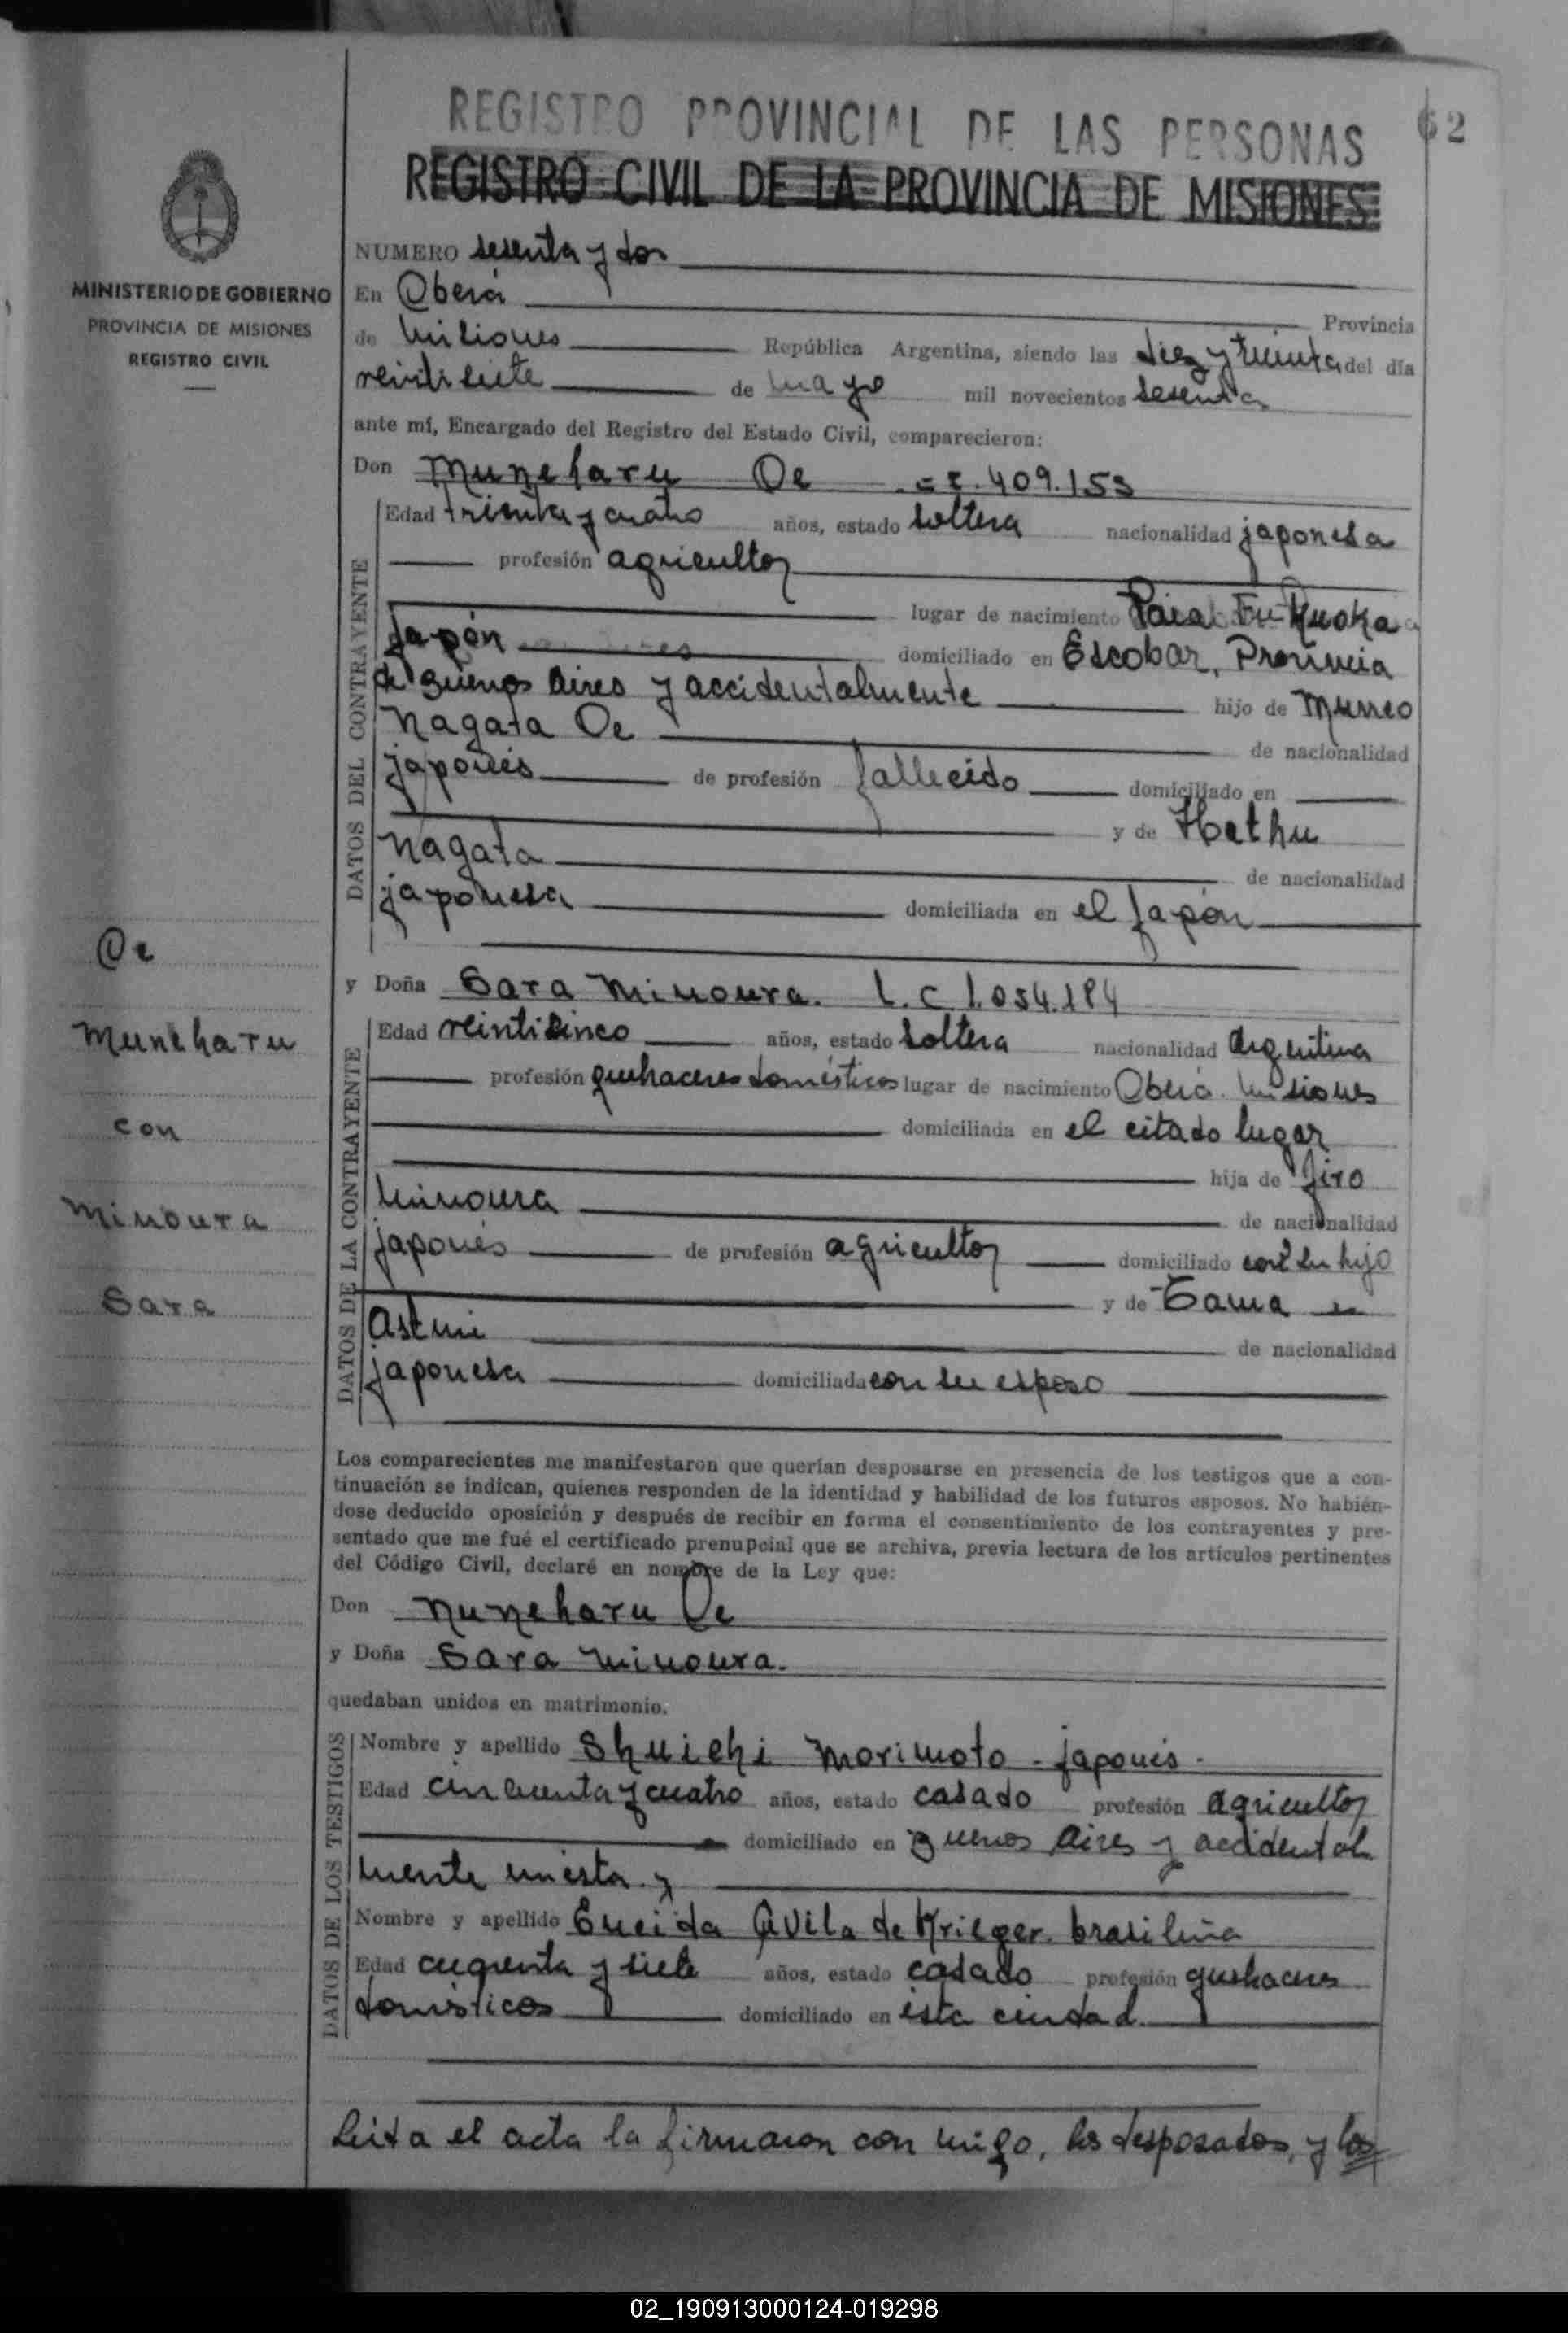 62
REGISTRO PROVINCIAL DE LAS PERSONAS
REGISTRO CIVIL DE LA PROVINCIA DE MISIONES
MINISTERIO DE GOBIERNO
PROVINCIA DE MISIONES
REGISTRO CIVIL
NUMERO sesenta y dos
En Oberá Provincia
de Misiones República Argentina, siendo las diez y treinta del día
veintisiete de mayo mil novecientos sesenta
ante mí, Encargado del Registro del Estado Civil, comparecieron:
Don Muneharu Oe 409.153
DATOS DEL CONTRAYENTE
Edad treinta y cuatro años, estado soltera nacionalidad japonesa
profesión agricultor
lugar de nacimiento Fukuoka
Japón domiciliado en Escobar, Provincia
de Buenos Aires y accidentalmente hijo de
Nagata Oe de nacionalidad
japonés de profesión fallecido domiciliado en
y de Hathu
Nagata de nacionalidad
japonesa domiciliada en el Japón
Oe
Muneharu
con
Minoura
Sara
y Doña Sara Minoura. L.C 1.054.184
DATOS DE LA CONTRAYENTE
Edad veinticinco años, estado soltera nacionalidad argentina
profesión quehaceres domésticos lugar de nacimiento Oberá. Misiones
domiciliada en el citado lugar
hija de Jiro
Minoura de nacionalidad
japonés de profesión agricultor domiciliado con su hijo
y de Tama
de nacionalidad
japonesa domiciliada con su esposo
Los comparecientes me manifestaron que querían desposarse en presencia de los testigos que a con-
tinuación se indican, quienes responden de la identidad y habilidad de los futuros esposos. No habién-
dose deducido oposición y después de recibir en forma el consentimiento de los contrayentes y pre-
sentado que me fué el certificado prenupcial que se archiva, previa lectura de los artículos pertinentes
del Código Civil, declaré en nombre de la Ley que:
Don Muneharu Oe
y Doña Sara Minoura.
quedaban unidos en matrimonio.
DATOS DE LOS TESTIGOS
Nombre y apellido Shuichi Morimoto - japonés -
Edad cincuenta y cuatro años, estado casado profesión agricultor
domiciliado en Buenos Aires y accidental
mente en ésta y
Nombre y apellido Eneida Avila de Krieger. brasileña
Edad cuarenta y siete años, estado casado profesión quehaceres
domésticos domiciliado en ésta ciudad
Leída el acta la firmaron con migo, los desposados, y los
02_190913000124-019298